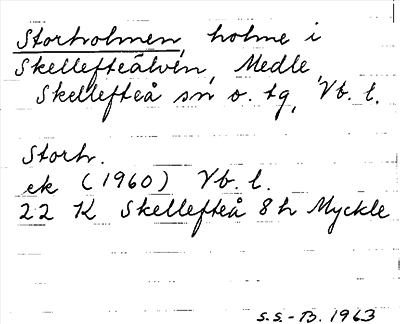 Storholmen, holme i
Skellefteälven, Medle,
Skellefteå sn o. tg, Vb. l.
Storh.
ek (1960) Vb. l.
22 K Skellefteå 8h Myckle
S.S.-B. 1963